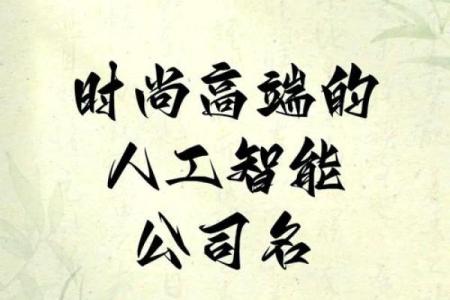 时尚高端的
人工智能
公司名